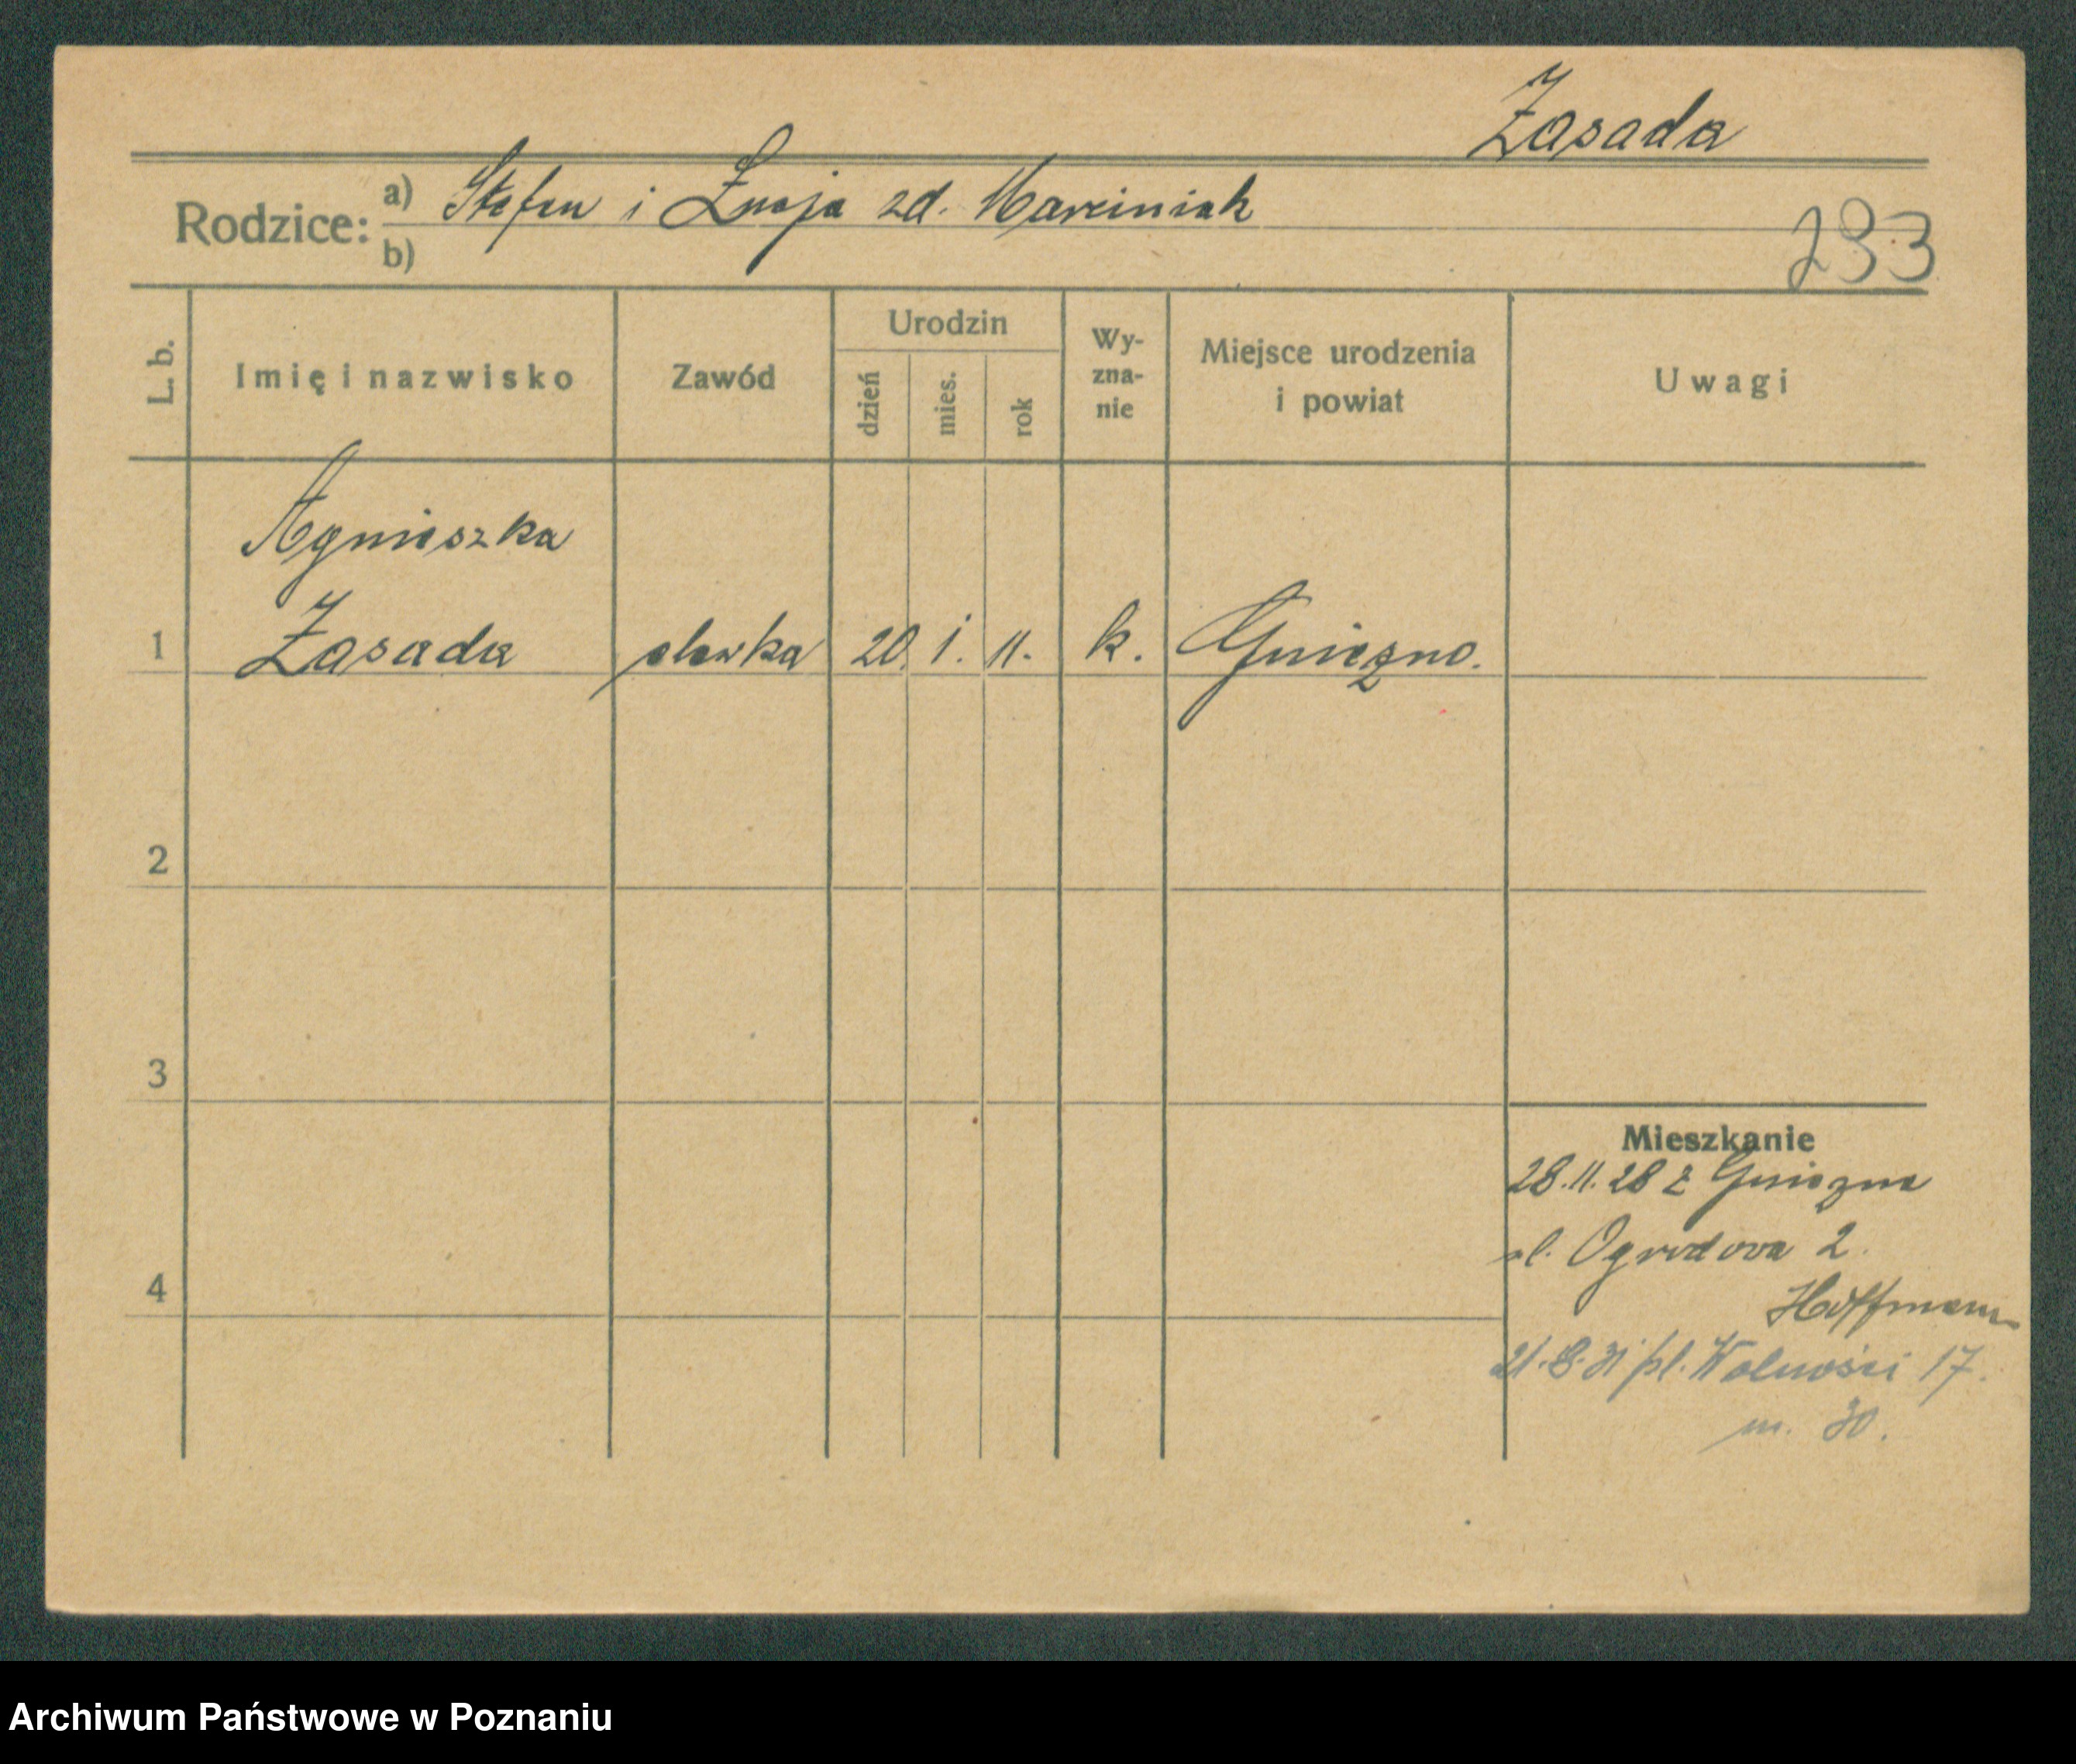 Zasada
Rodzice: a) Stefan i Łucja zd. Marciniak
b)
293
L. b. Imię i nazwisko Zawód Urodzin dzień mies. rok Wy-zna-nie Miejsce urodzenia i powiat Uwagi
Agnieszka
1 Zasada 20. 1. 11. k. Gniezno.
2
3
Mieszkanie
28.11.28 z Gniezna
ul. Ogrodowa 2.
4
Hoffmann
21.8.31 pl. Wolności 17.
m. 30.
Archiwum Państwowe w Poznaniu